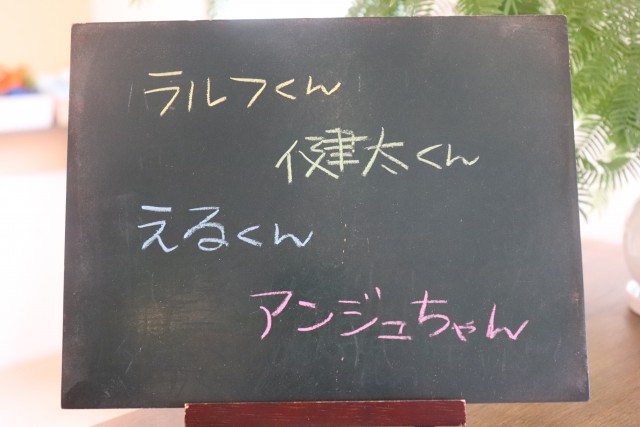 ラルフくん
健太くん
えるくん
アンジュちゃん